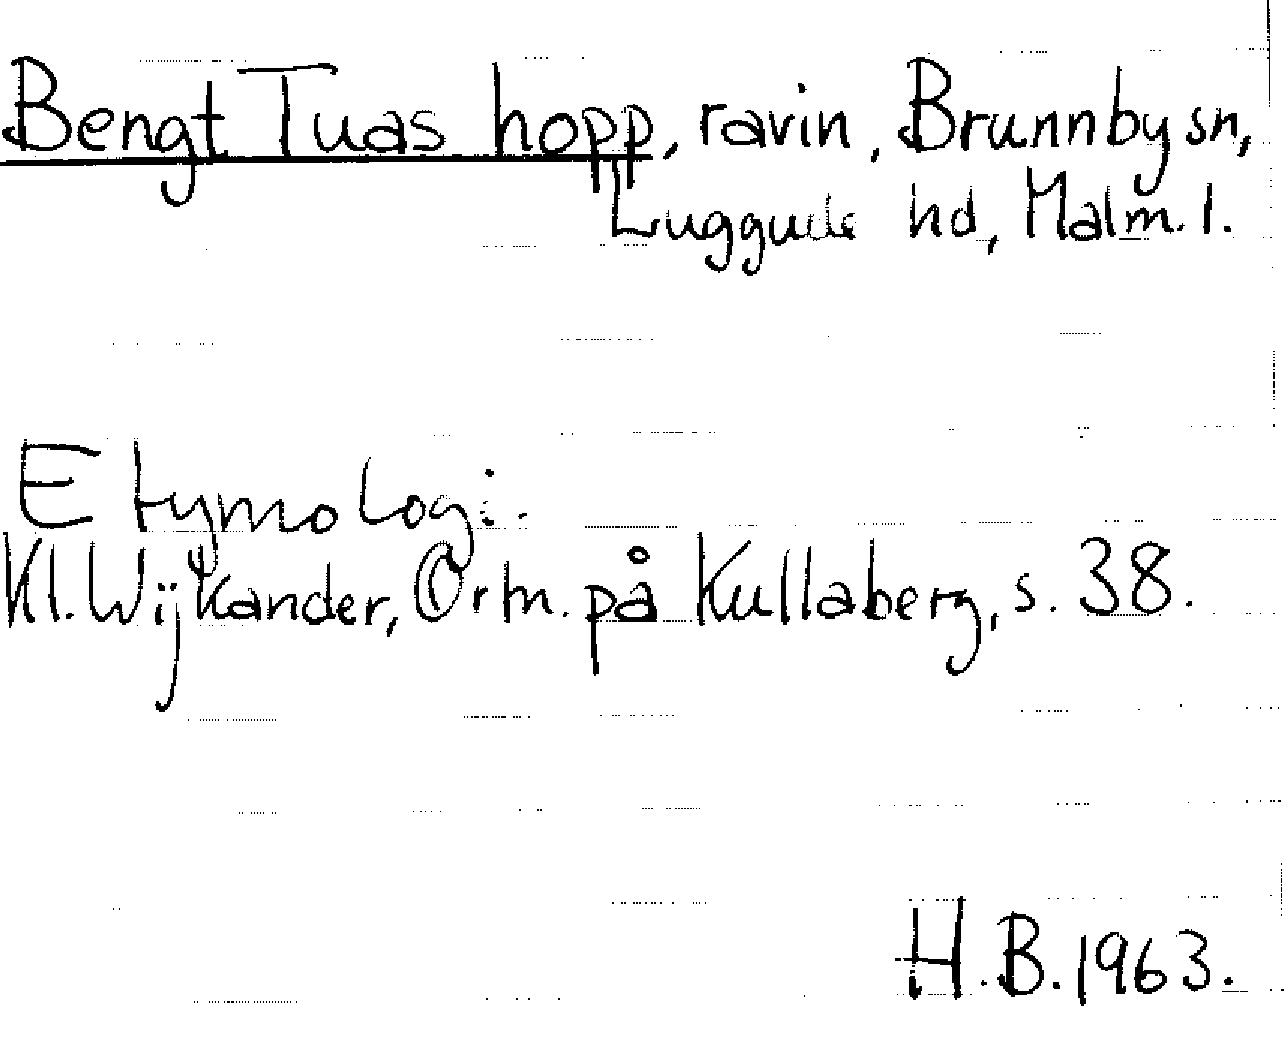 Bengt Tuas hopp, ravin, Brunnby sn,
Luggude hd, Malm. l.
Etymologi.
Kl. Wijkander, Ortn. på Kullaberg, s. 38.
H.B. 1963.